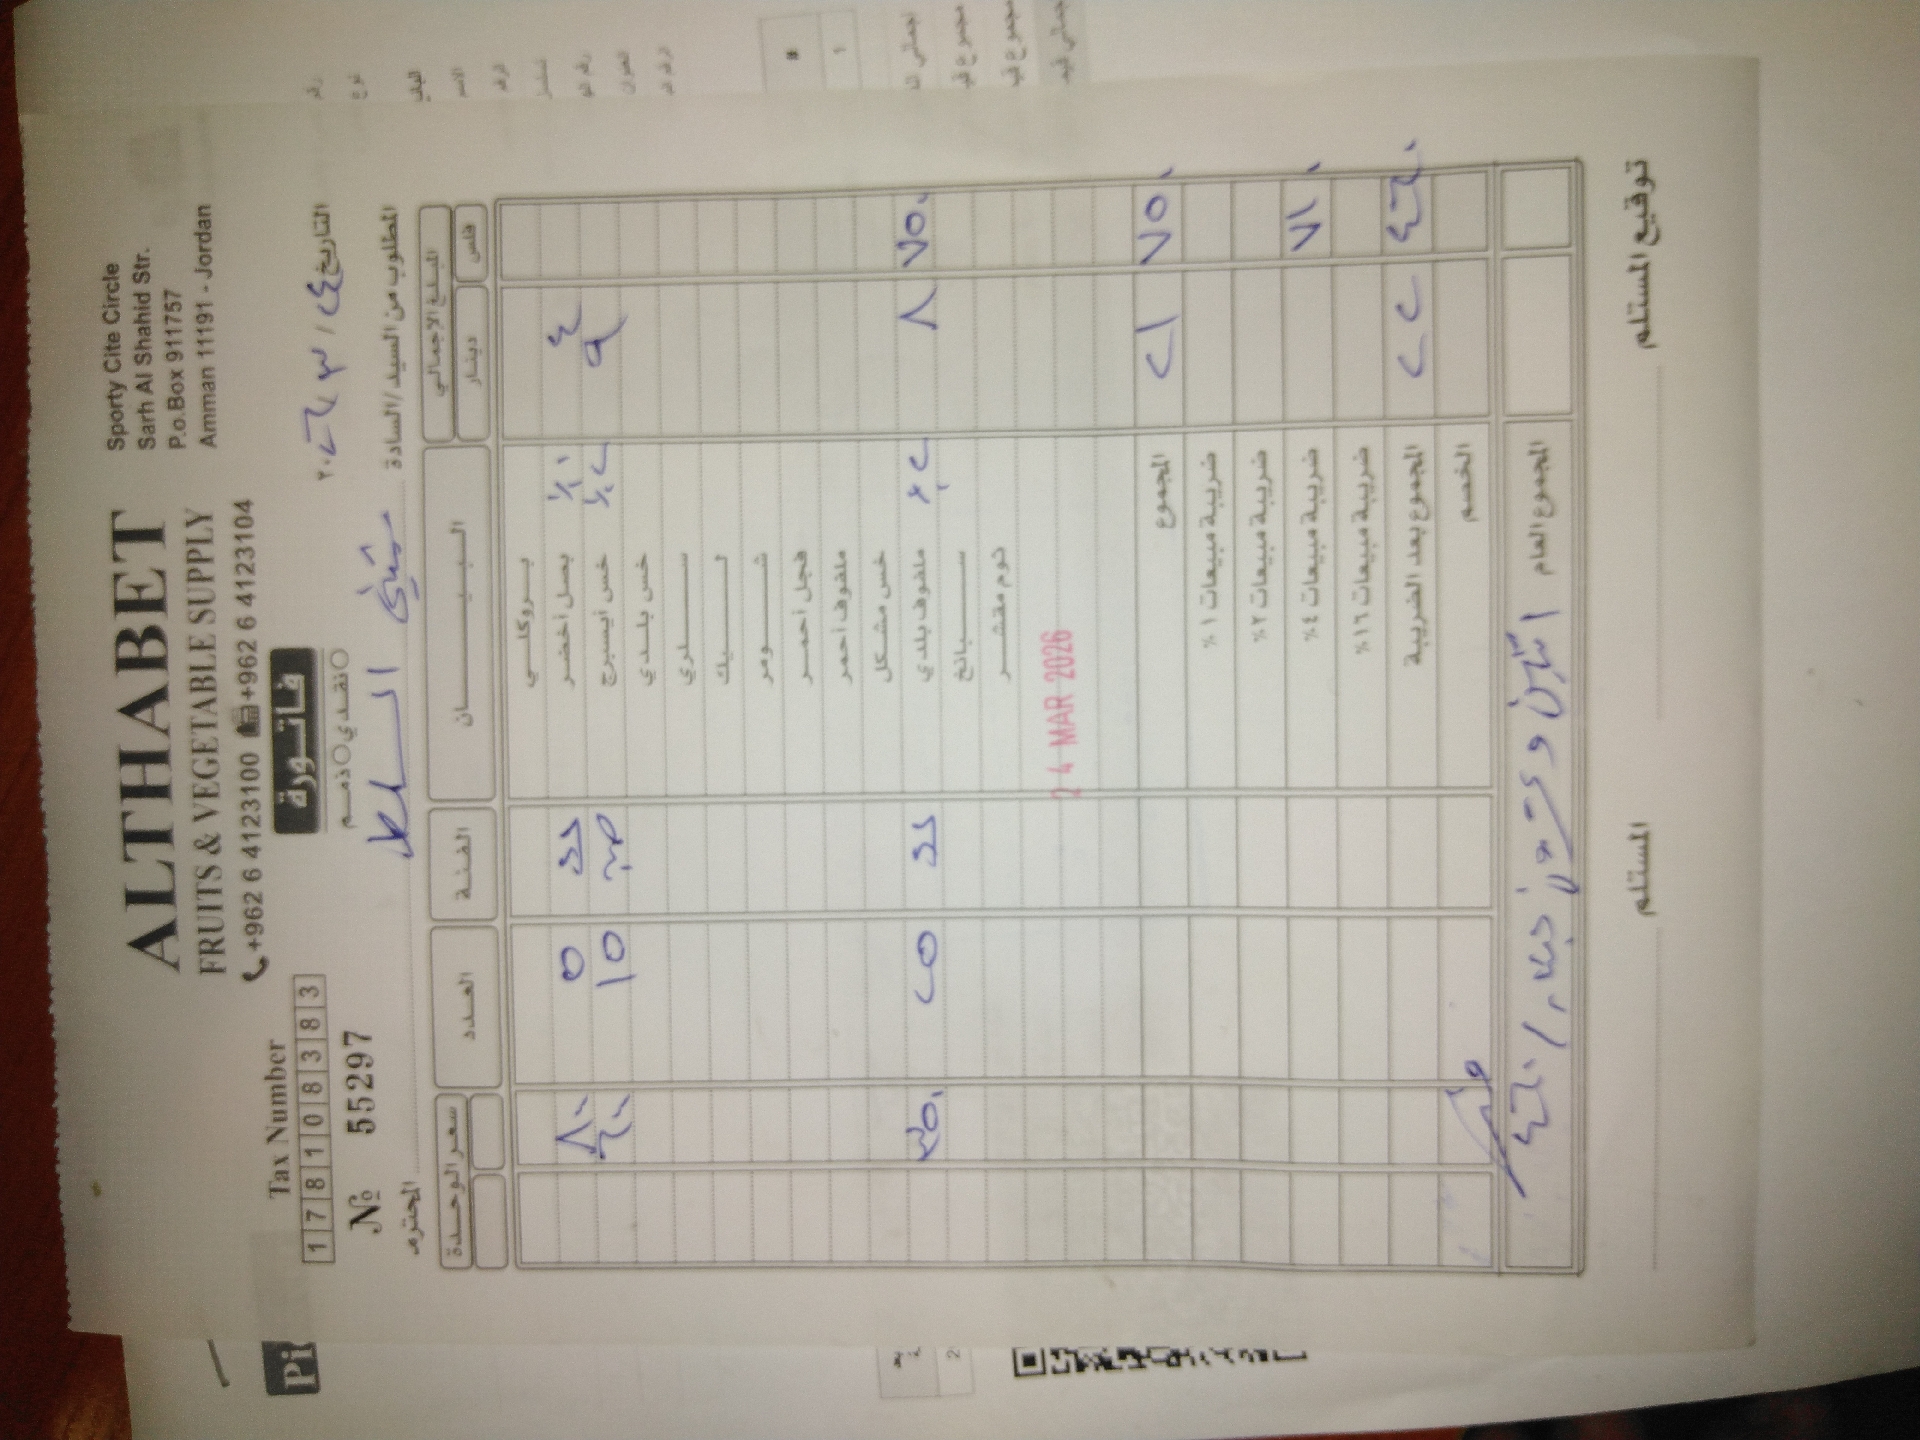 ALTHABET
FRUITS & VEGETABLE SUPPLY
+962 6 4123100 +962 6 4123104
Sporty Cite Circle
Sarh Al Shahid Str.
P.o.Box 911757
Amman 11191 - Jordan
Tax Number
1 7 8 1 0 8 3 8 3
فاتورة
نقدي ذمم
№ 55297
التاريخ ٢٤ / ٣ / ٢٠٢٦
المطلوب من السيد/السادة مستشفى السلط المحترم
المبلغ الإجمالي البيان الفئة العدد سعر الوحدة
دينار فلس
بروكلي
٤ بصل أخضر ٥ ٨٠٠
٩ خس آيسبرج ١٥ ٦٠٠
خس بلدي
سلري
ليك
شومر
فجل أحمر
ملفوف أحمر
خس مشكل
٨ ٧٥٠ ملفوف بلدي ٢٥ ٣٥٠
سبانخ
ثوم مقشر
24 MAR 2026
المجموع ٢١ ٧٥٠
ضريبة مبيعات ١%
ضريبة مبيعات ٢%
ضريبة مبيعات ٤% ٧١٠
ضريبة مبيعات ١٦%
المجموع بعد الضريبة ٢٢ ٤٦٠
الخصم
المجموع العام اثنان وعشرون دينار / ٤٦٠
المستلم
توقيع المستلم
Pi